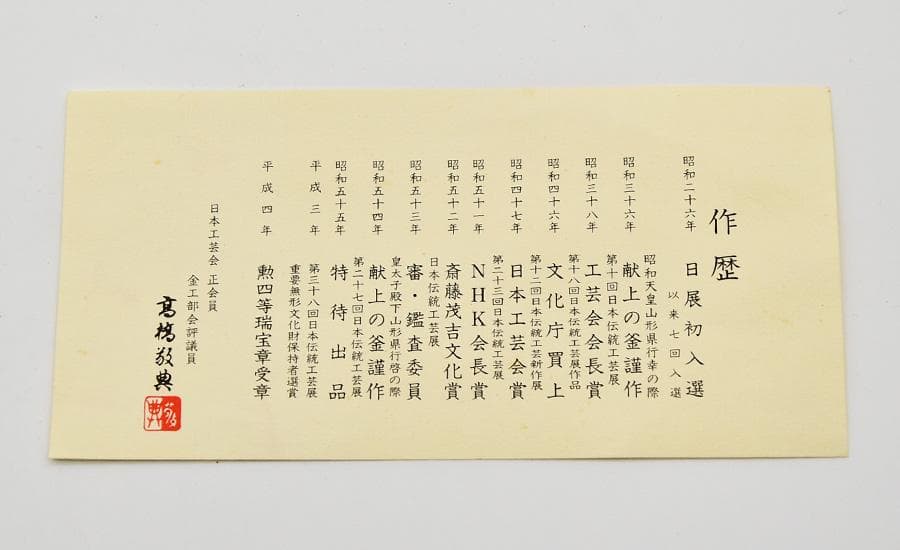 作歴
昭和二十六年　日展初入選
以来七回入選
昭和天皇山形県行幸の際
昭和三十六年　献上の釜謹作
第十回日本伝統工芸展
昭和三十八年　工芸会会長賞
第十八回日本伝統工芸展作品
昭和四十六年　文化庁買上
第十二回日本伝統工芸新作展
昭和四十七年　日本工芸会賞
第二十三回日本伝統工芸展
昭和五十一年　NHK会長賞
昭和五十二年　斎藤茂吉文化賞
日本伝統工芸展
昭和五十三年　審・鑑査委員
皇太子殿下山形県行啓の際
昭和五十四年　献上の釜謹作
第二十七回日本伝統工芸展
昭和五十五年　特待出品
平成三年　第三十八回日本伝統工芸展
重要無形文化財保持者選賞
平成四年　勲四等瑞宝章受章
日本工芸会 正会員
金工部会評議員
高橋敬典
敬典